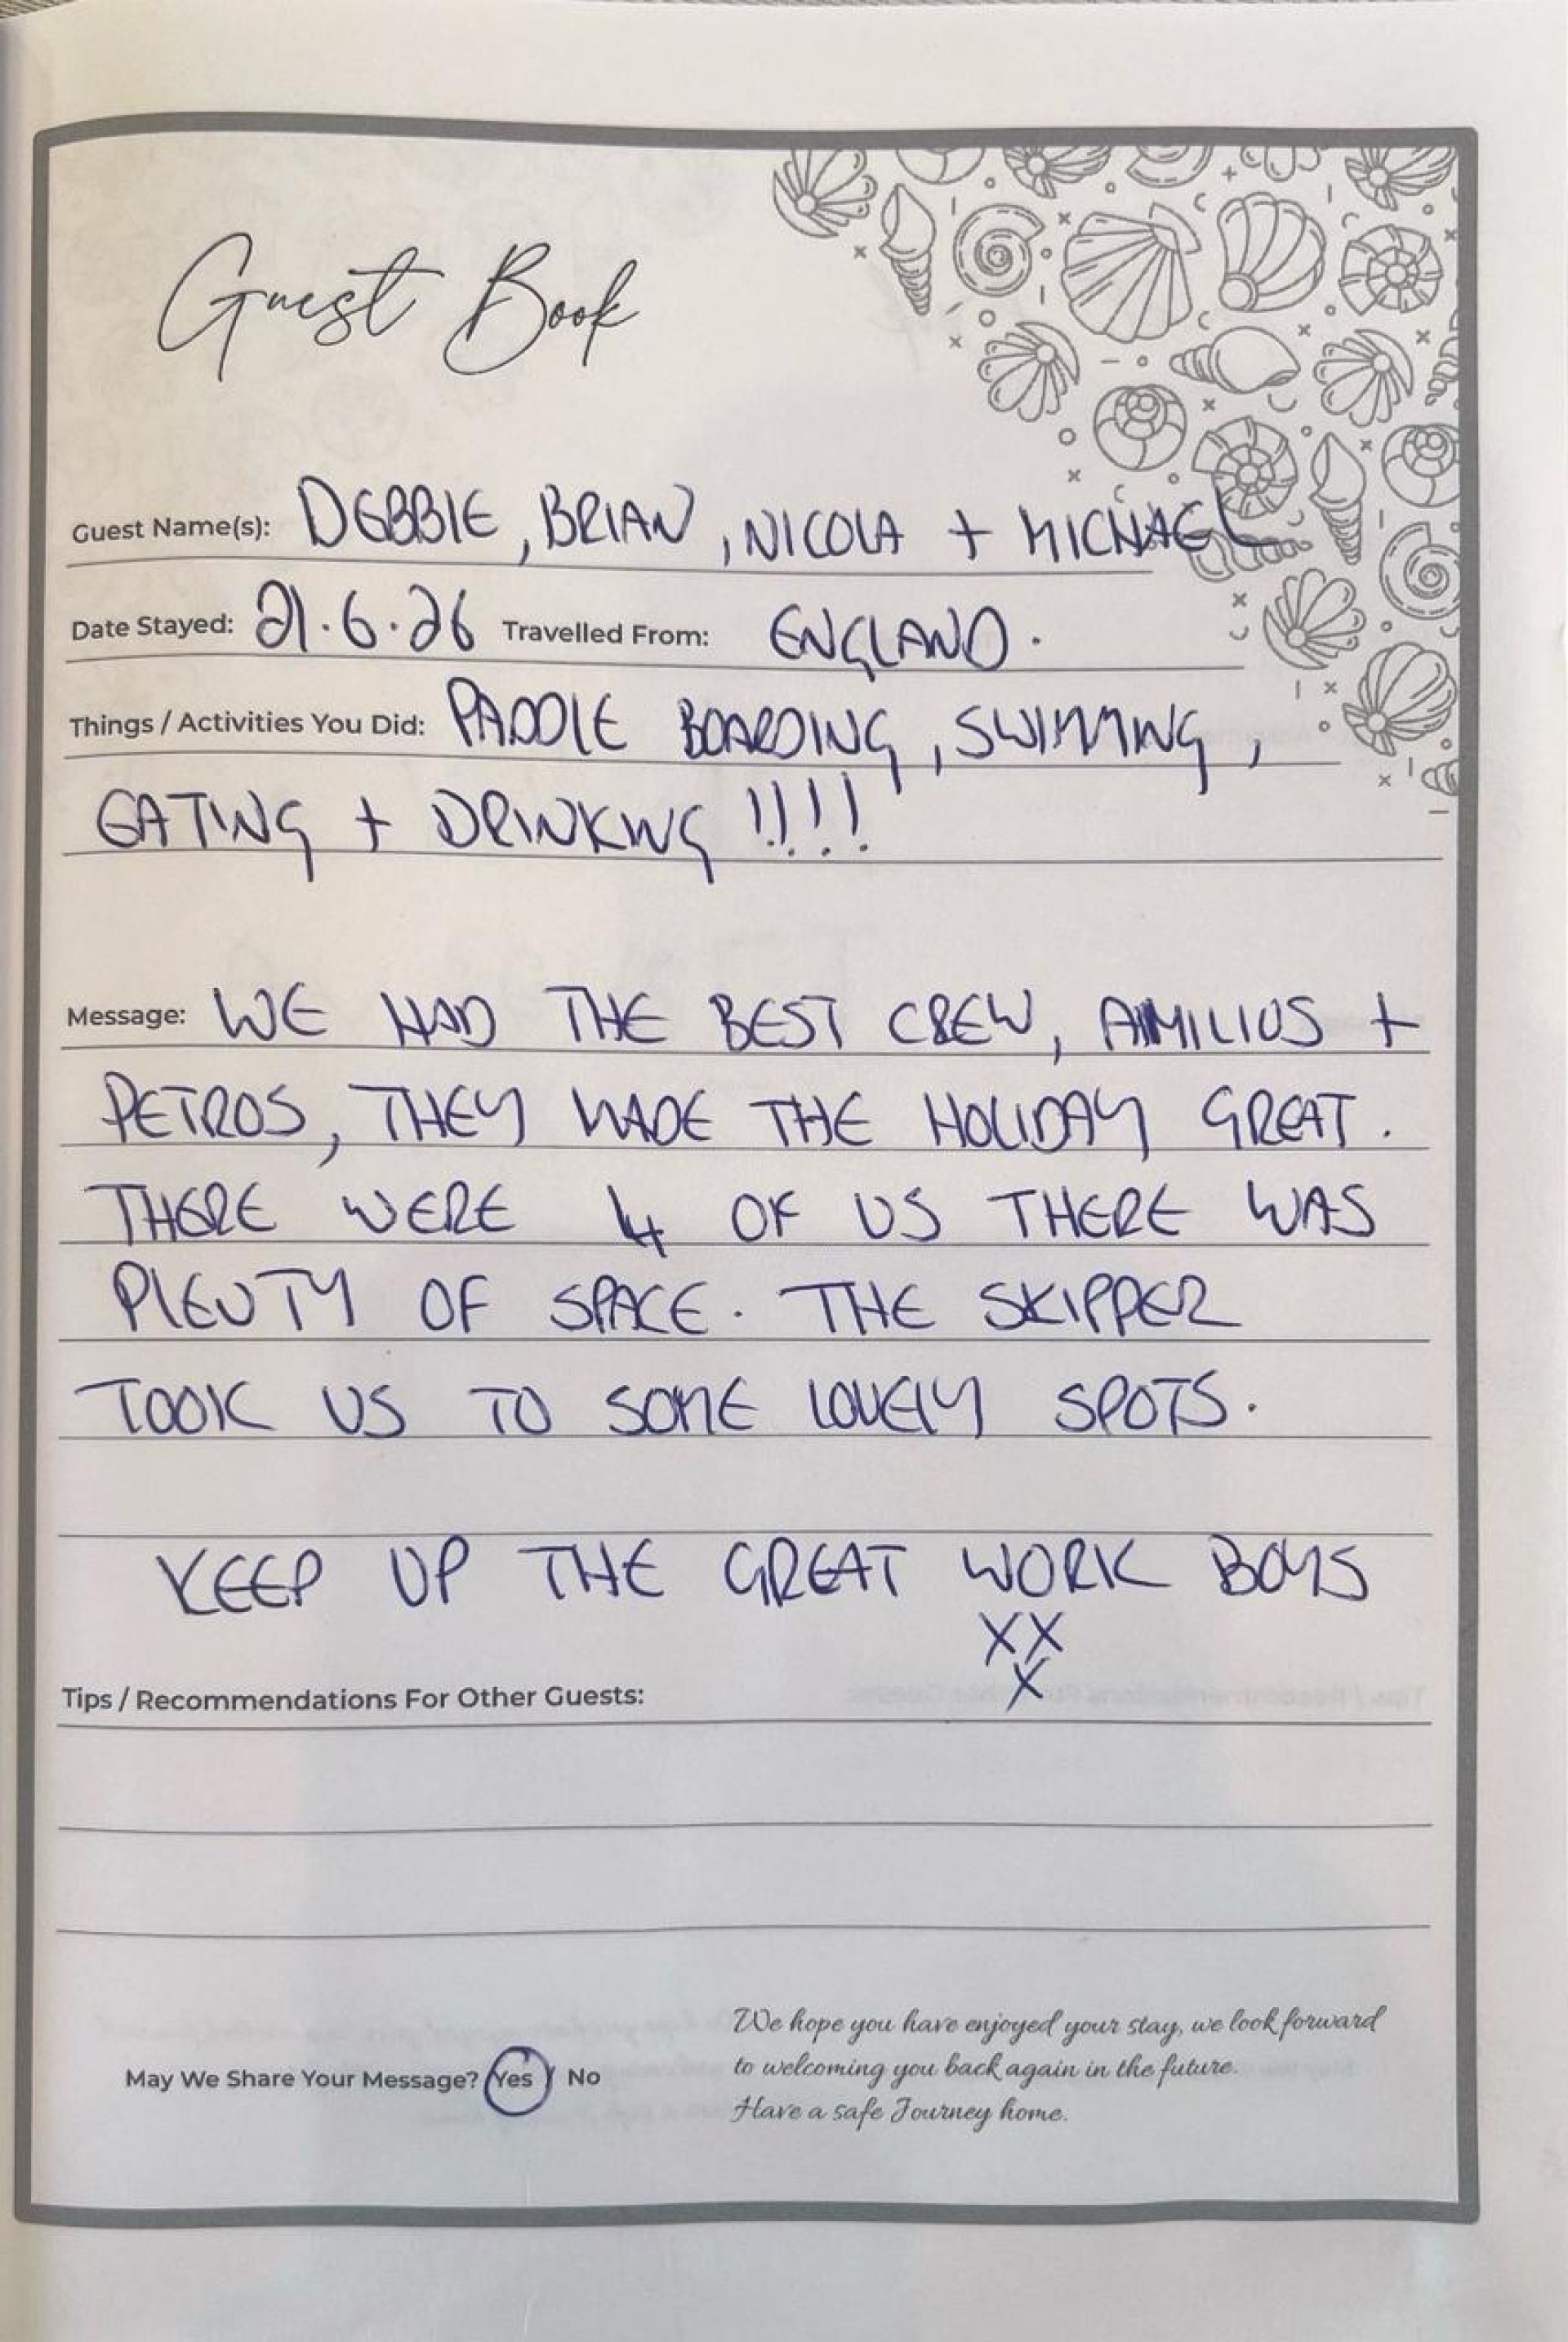 Guest Book
Guest Name(s): DEBBIE, BRIAN, NICOLA + MICHAEL
Date Stayed: 21.6.26 Travelled From: ENGLAND.
Things / Activities You Did: PADDLE BOARDING, SWIMMING,
EATING + DRINKING !!!!
Message: WE HAD THE BEST CREW, AIMILIOS +
PETROS, THEY MADE THE HOLIDAY GREAT.
THERE WERE 4 OF US THERE WAS
PLENTY OF SPACE. THE SKIPPER
TOOK US TO SOME LOVELY SPOTS.
KEEP UP THE GREAT WORK BOYS
XX
X
Tips / Recommendations For Other Guests:
We hope you have enjoyed your stay, we look forward
to welcoming you back again in the future.
Have a safe Journey home.
May We Share Your Message? Yes / No